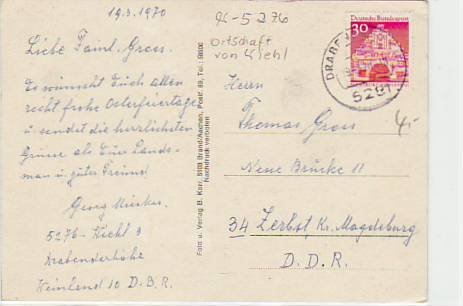 19.3.1970
Liebe Faml. Gross.
Es wünscht Euch allen
recht frohe Osterfeiertage
u sendet die herzlichsten
Grüsse als Eur Lands-
man u guter Freund
Georg
5276-Wiehl 3
Drabenderhöhe
Weinland 10 D.B.R.
Foto u. Verlag B. Karl, 5103 Brand/Aachen, Postf. 89, Tel.:
Nachdruck verboten
-5276
Ortschaft
von Wiehl
Deutsche Bundespost
30
DRABEN
5281
Herrn
Thomas Gross
Neue Brücke 11
34 Zerbst Kr. Magdeburg
D.D.R.